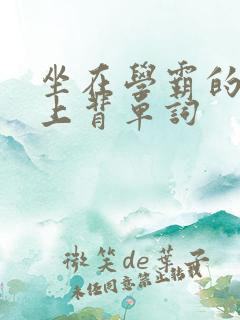 坐在學霸的
上背單詞
微笑de葉子
未經同意禁止轉載